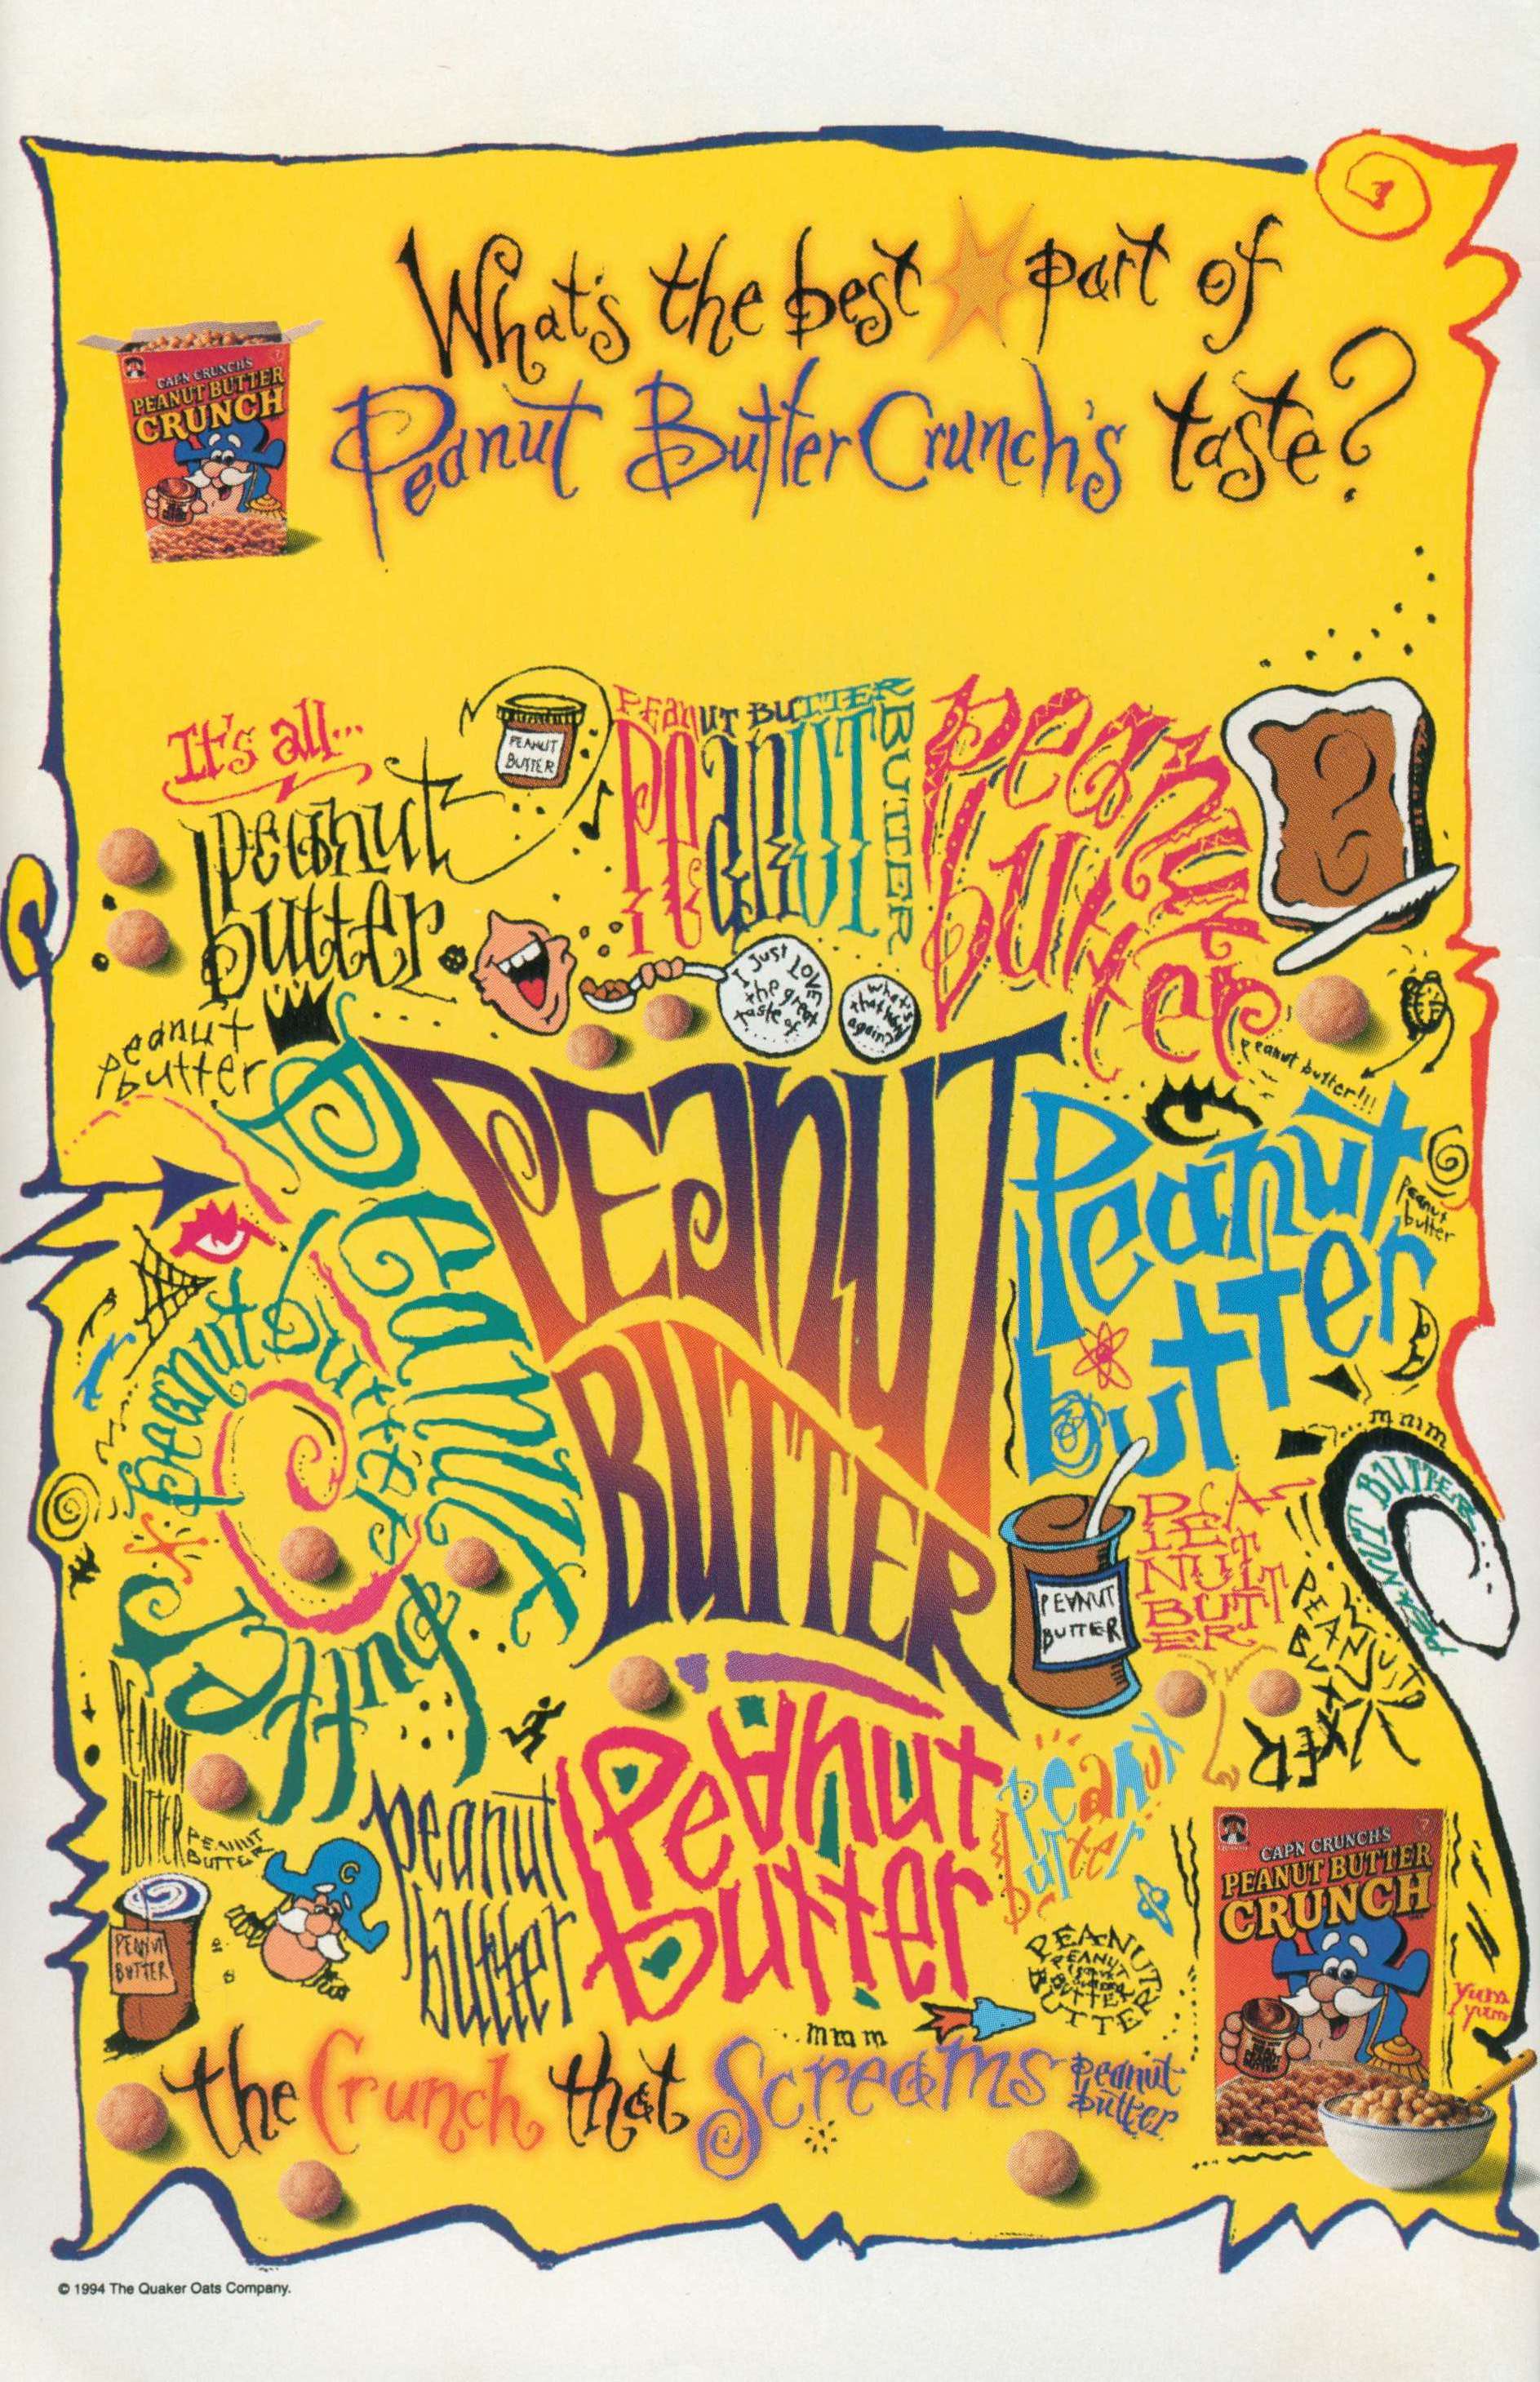 What's the best part of
Peanut Butter Crunch's taste?
CAP'N CRUNCH'S
PEANUT BUTTER
CRUNCH
It's all...
peanut
butter
PEANUT
BUTTER
PEANUT BUTTER
PEANUT
BUTTER
peanut
butter
I Just LOVE
the great
taste of...
what's
that word
again?
peanut
butter
peanut butter!!!
PEANUT
BUTTER
Peanut
butter
Peanut
butter
Peanut
butter
peanut butter
Peanut
butter
...mmm
PEANUT BUTTER
PEANUT
BUTTER
PEA
PEA
NUT
BUTT
ER
PEANUT
BUTTER
PEANUT
BUTTER
PEANUT
BUTTER
PEANUT
BUTTER
peanut
butter
Peanut
butter
peanut
butter
PEANUT
PEANUT
BUTTER
BUTTER
...mmm
CAP'N CRUNCH'S
PEANUT BUTTER
CRUNCH
yum
yum
the Crunch that Screams peanut
butter
© 1994 The Quaker Oats Company.